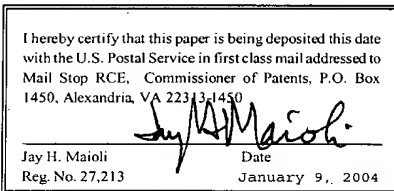 I hereby certify that this paper is being deposited this date
with the U.S. Postal Service in first class mail addressed to
Mail Stop RCE, Commissioner of Patents, P.O. Box
1450, Alexandria, VA 22313-1450
Jay H Maioli
Jay H. Maioli Date
Reg. No. 27,213 January 9, 2004